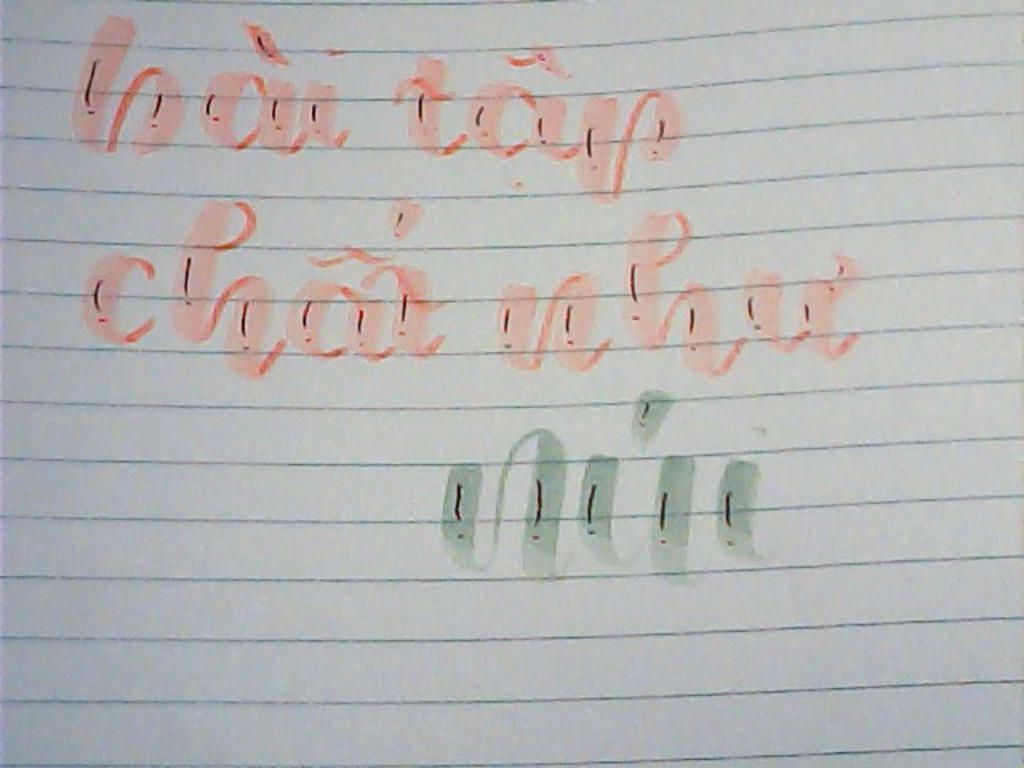 bài tập
chất như
núi